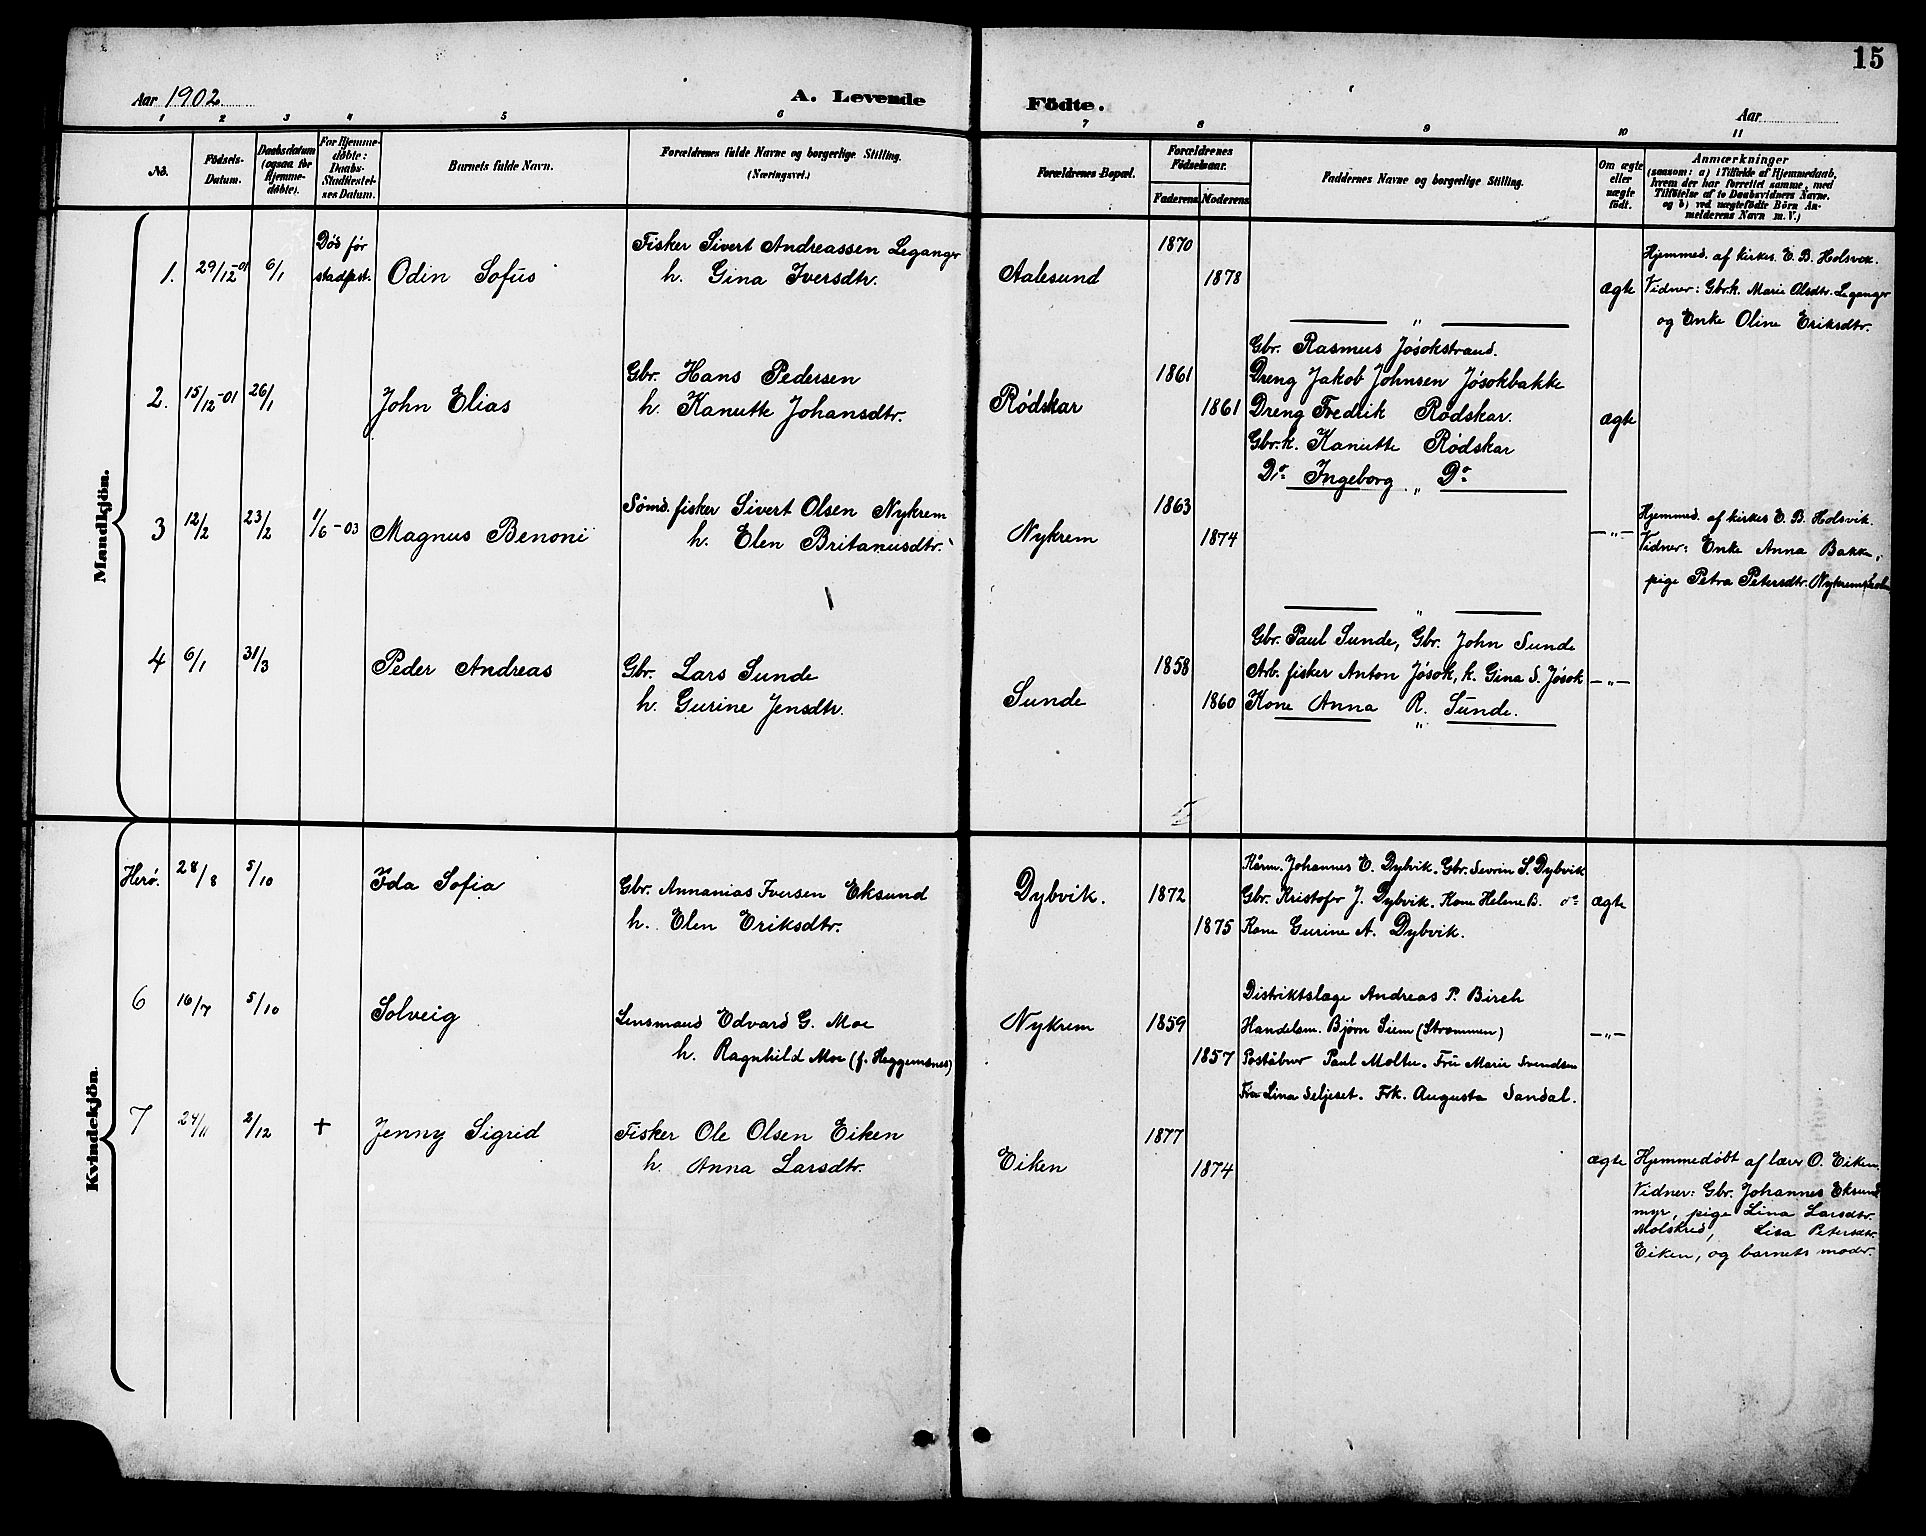 15
Aar 1902
A. Levende Födte.
Aar
1 2 3 4 5 6 7 8 9 10 11
No.
Födsels-Datum.
Daabsdatum (ogsaa for Hjemmedöbte).
For Hjemmedöbte: Daabs-Stadfæstelses Datum.
Barnets fulde Navn.
Forældrenes fulde Navne og borgerlige Stilling. (Næringsvei.)
Forældrenes Bopæl.
Forældrenes Födselsaar.
Faderens Moderens
Faddernes Navne og borgerlige Stilling.
Om ægte eller uægte födt.
Anmærkninger
(saasom: a) i Tilfælde af Hjemmedaab, hvem der har forrettet samme, med Tilföielse af to Daabsvidners Navne. og b) ved uægtefödte Börn Anmelderens Navn m. V.)
Mandkjön.
1. 29/12-01 6/1 Död før stadfest. Odin Sofus
Fisker Sivert Andreassen Leganger
h. Gina Iversdtr.
Aalesund 1870 1878
— „ —
ægte
Hjemmed. af kirkes. E. B. Holsvik.
Vidner: Gbr.k. Marie Olsdtr. Leganger
og Enke Oline Eriksdtr.
2. 15/12-01 26/1 John Elias
Gbr. Hans Pedersen
h. Kanutte Johansdtr.
Rødskar 1861 1861
Gbr. Rasmus Jøsokstrand.
Dreng Jakob Johnsen Jøsokbakke
Dreng Fredrik Rødskar.
Gbr.k. Kanutte Rødskar
Do. Ingeborg Do.
— „ —
ægte
3 12/2 23/2 1/6-03 Magnus Benoni
Sømd. fisker Sivert Olsen Nykrem
h. Elen Britanusdtr.
Nykrem 1863 1874
— „ —
— „ —
Hjemmed. af kirkes E. B. Holsvik.
Vidner: Enke Anna Bakke,
pige Petra Petersdtr. Nykrem
4 6/1 31/3 Peder Andreas
Gbr. Lars Sunde
h. Gurine Jensdtr.
Sunde 1858 1860
Gbr. Paul Sunde, Gbr. John Sunde
Arb. fisker Anton Jøsok, k. Gina S. Jøsok
Kone Anna R. Sunde.
— „ —
— „ —
Kvindekjön.
Herø. 28/8 5/10 Ida Sofia
Gbr. Annanias Iversen Eksund
h. Elen Eriksdtr.
Dybvik. 1872 1875
Kårm. Johannes E. Dybvik. Gbr. Sevrin S. Dybvik
Gbr. Kristofer J. Dybvik. Kone Helene B. do
Kone Gurine A. Dybvik.
ægte
6 16/7 5/10 Solveig
Lensmand Edvard G. Moe
h. Ragnhild Moe (f. Heggemsnes)
Nykrem 1859 1857
Distriktslæge Andreas P. Birch
Handelsm. Bjørn Siem (Strømmen)
Poståbner Paul Moltu. Fru Marie Svendsen
Frøk. Lina Seljeset. Frk. Augusta Sandal.
— „ —
7 24/11 2/12 + Jenny Sigrid
Fisker Ole Olsen Eiken
h. Anna Larsdtr.
Eiken 1877 1874
ægte
Hjemmedøbt af lærer O. Eiken.
Vidner: Gbr. Johannes Eksund
myr, pige Lina Larsdtr.
Molskred, Lisa Petersdtr.
Eiken, og barnets moder.